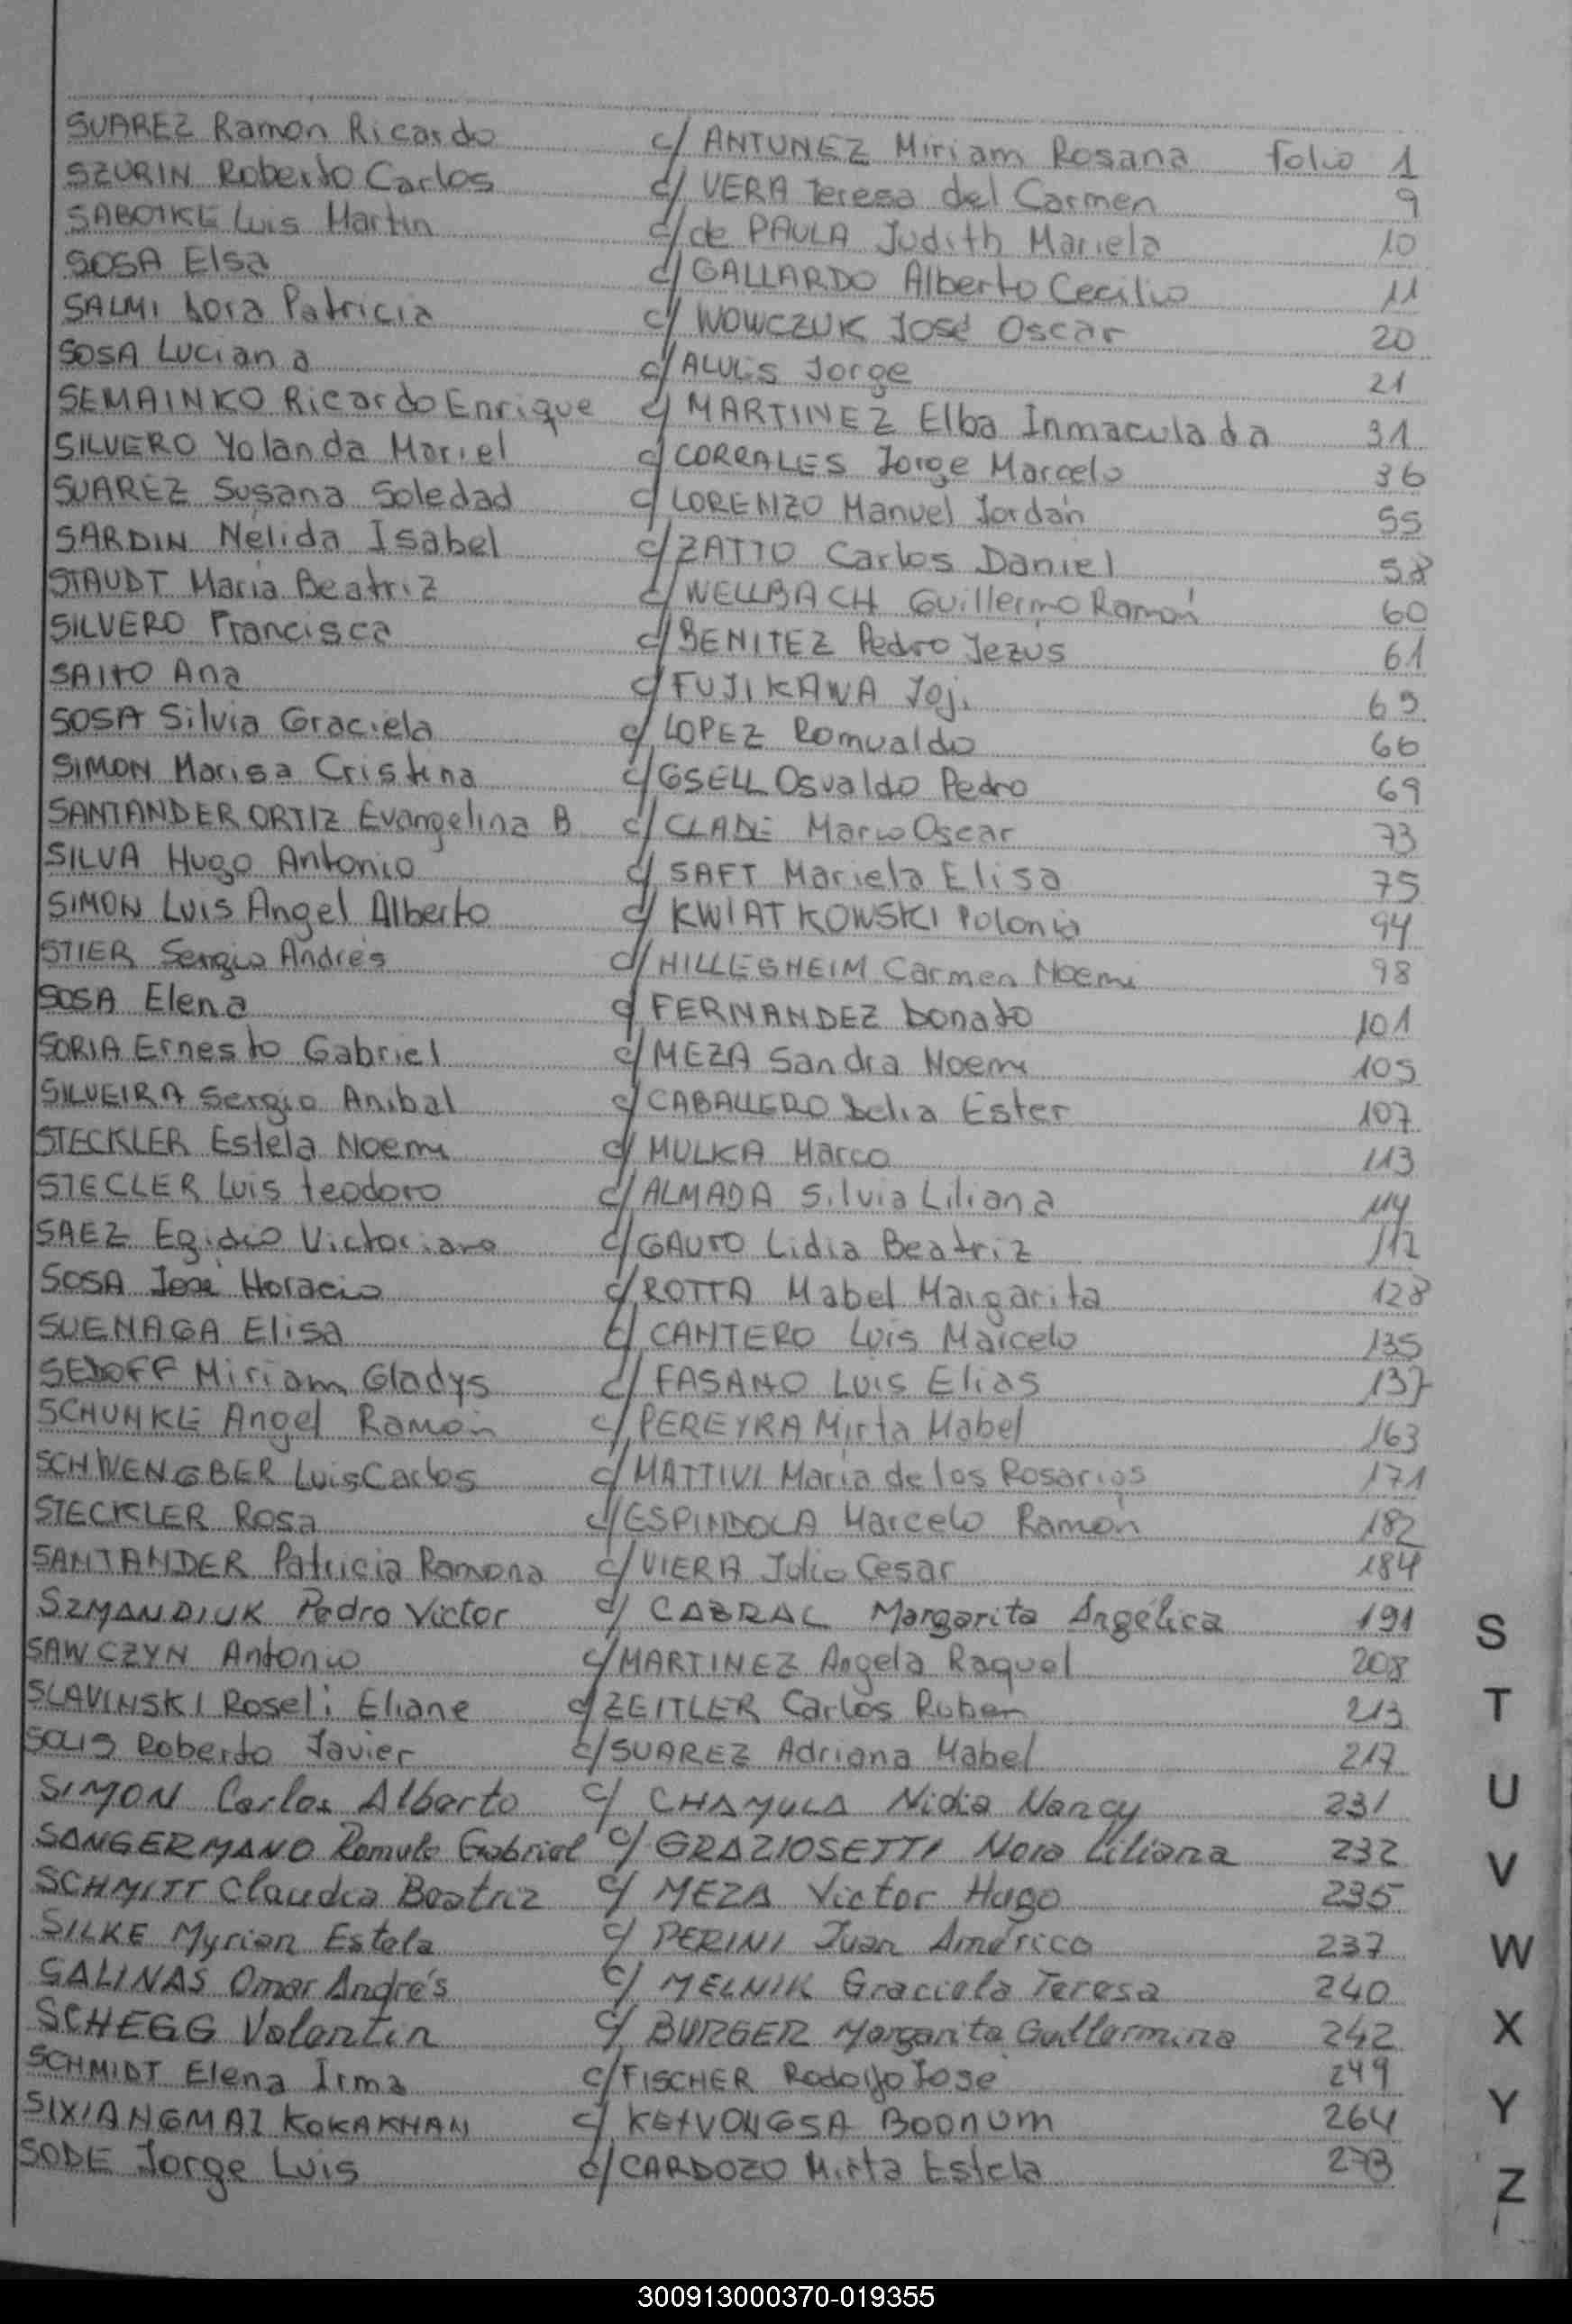 SUAREZ Ramon Ricardo c/ ANTUNEZ Miriam Rosana folio 1
SZURIN Roberto Carlos c/ VERA Teresa del Carmen 9
SABOTKE Luis Martin c/ de PAULA Judith Mariela 10
SOSA Elsa c/ GALLARDO Alberto Cecilio 11
SALMI Dora Patricia c/ WOWCZUK José Oscar 20
SOSA Luciana c/ ALVES Jorge 21
SEMAINKO Ricardo Enrique c/ MARTINEZ Elba Inmaculada 31
SILVERO Yolanda Mariel c/ CORRALES Jorge Marcelo 36
SUAREZ Susana Soledad c/ LORENZO Manuel Jordán 55
SARDIN Nélida Isabel c/ ZATTO Carlos Daniel 58
STAUDT María Beatriz c/ WELLBACH Guillermo Ramón 60
SILVERO Francisca c/ BENITEZ Pedro Jezús 61
SAITO Ana c/ FUJIKAWA Joji 65
SOSA Silvia Graciela c/ LOPEZ Romualdo 66
SIMON Marisa Cristina c/ GSELL Osvaldo Pedro 69
SANTANDER ORTIZ Evangelina B c/ CLADE Mario Oscar 73
SILVA Hugo Antonio c/ SAFT Mariela Elisa 75
SIMON Luis Angel Alberto c/ KWIATKOWSKI Polonia 94
STIER Sergio Andrés c/ HILLESHEIM Carmen Noemi 98
SOSA Elena c/ FERNANDEZ Donato 101
SORIA Ernesto Gabriel c/ MEZA Sandra Noemi 105
SILVEIRA Sergio Anibal c/ CABALLERO Delia Ester 107
STECKLER Estela Noemi c/ MULKA Marco 113
STECLER Luis Teodoro c/ ALMADA Silvia Liliana 114
SAEZ Egidio Victoriano c/ GAUTO Lidia Beatriz 112
SOSA José Horacio c/ ROTTA Mabel Margarita 128
SUENAGA Elisa c/ CANTERO Luis Marcelo 135
SEDOFF Miriam Gladys c/ FASANO Luis Elias 137
SCHUNKE Angel Ramón c/ PEREYRA Mirta Mabel 163
SCHWENGBER Luis Carlos c/ MATTIVI María de los Rosarios 171
STECKLER Rosa c/ ESPINDOLA Marcelo Ramón 182
SANTANDER Patricia Ramona c/ VIERA Julio Cesar 184
SZMANDIUK Pedro Victor c/ CABRAL Margarita Angélica 191
SAWCZYN Antonio c/ MARTINEZ Angela Raquel 208
SLAVINSKI Roseli Eliane c/ ZEITLER Carlos Ruben 213
SOLIS Roberto Javier c/ SUAREZ Adriana Mabel 217
SIMON Carlos Alberto c/ CHAMULA Nidia Nancy 231
SANGERMANO Romulo Gabriel c/ GRAZIOSETTI Nora Liliana 232
SCHMITT Claudia Beatriz c/ MEZA Victor Hugo 235
SILKE Myrian Estela c/ PERINI Juan Américo 237
SALINAS Omar Andrés c/ MELNIK Graciela Teresa 240
SCHEGG Valentin c/ BURGER Margarita Guillermina 242
SCHMIDT Elena Irma c/ FISCHER Rodolfo José 249
SIXIANGMAI KOKAKHAN c/ KEXVONGSA Boonum 264
SODE Jorge Luis c/ CARDOZO Mirta Estela 273
S
T
U
V
W
X
Y
Z
300913000370-019355